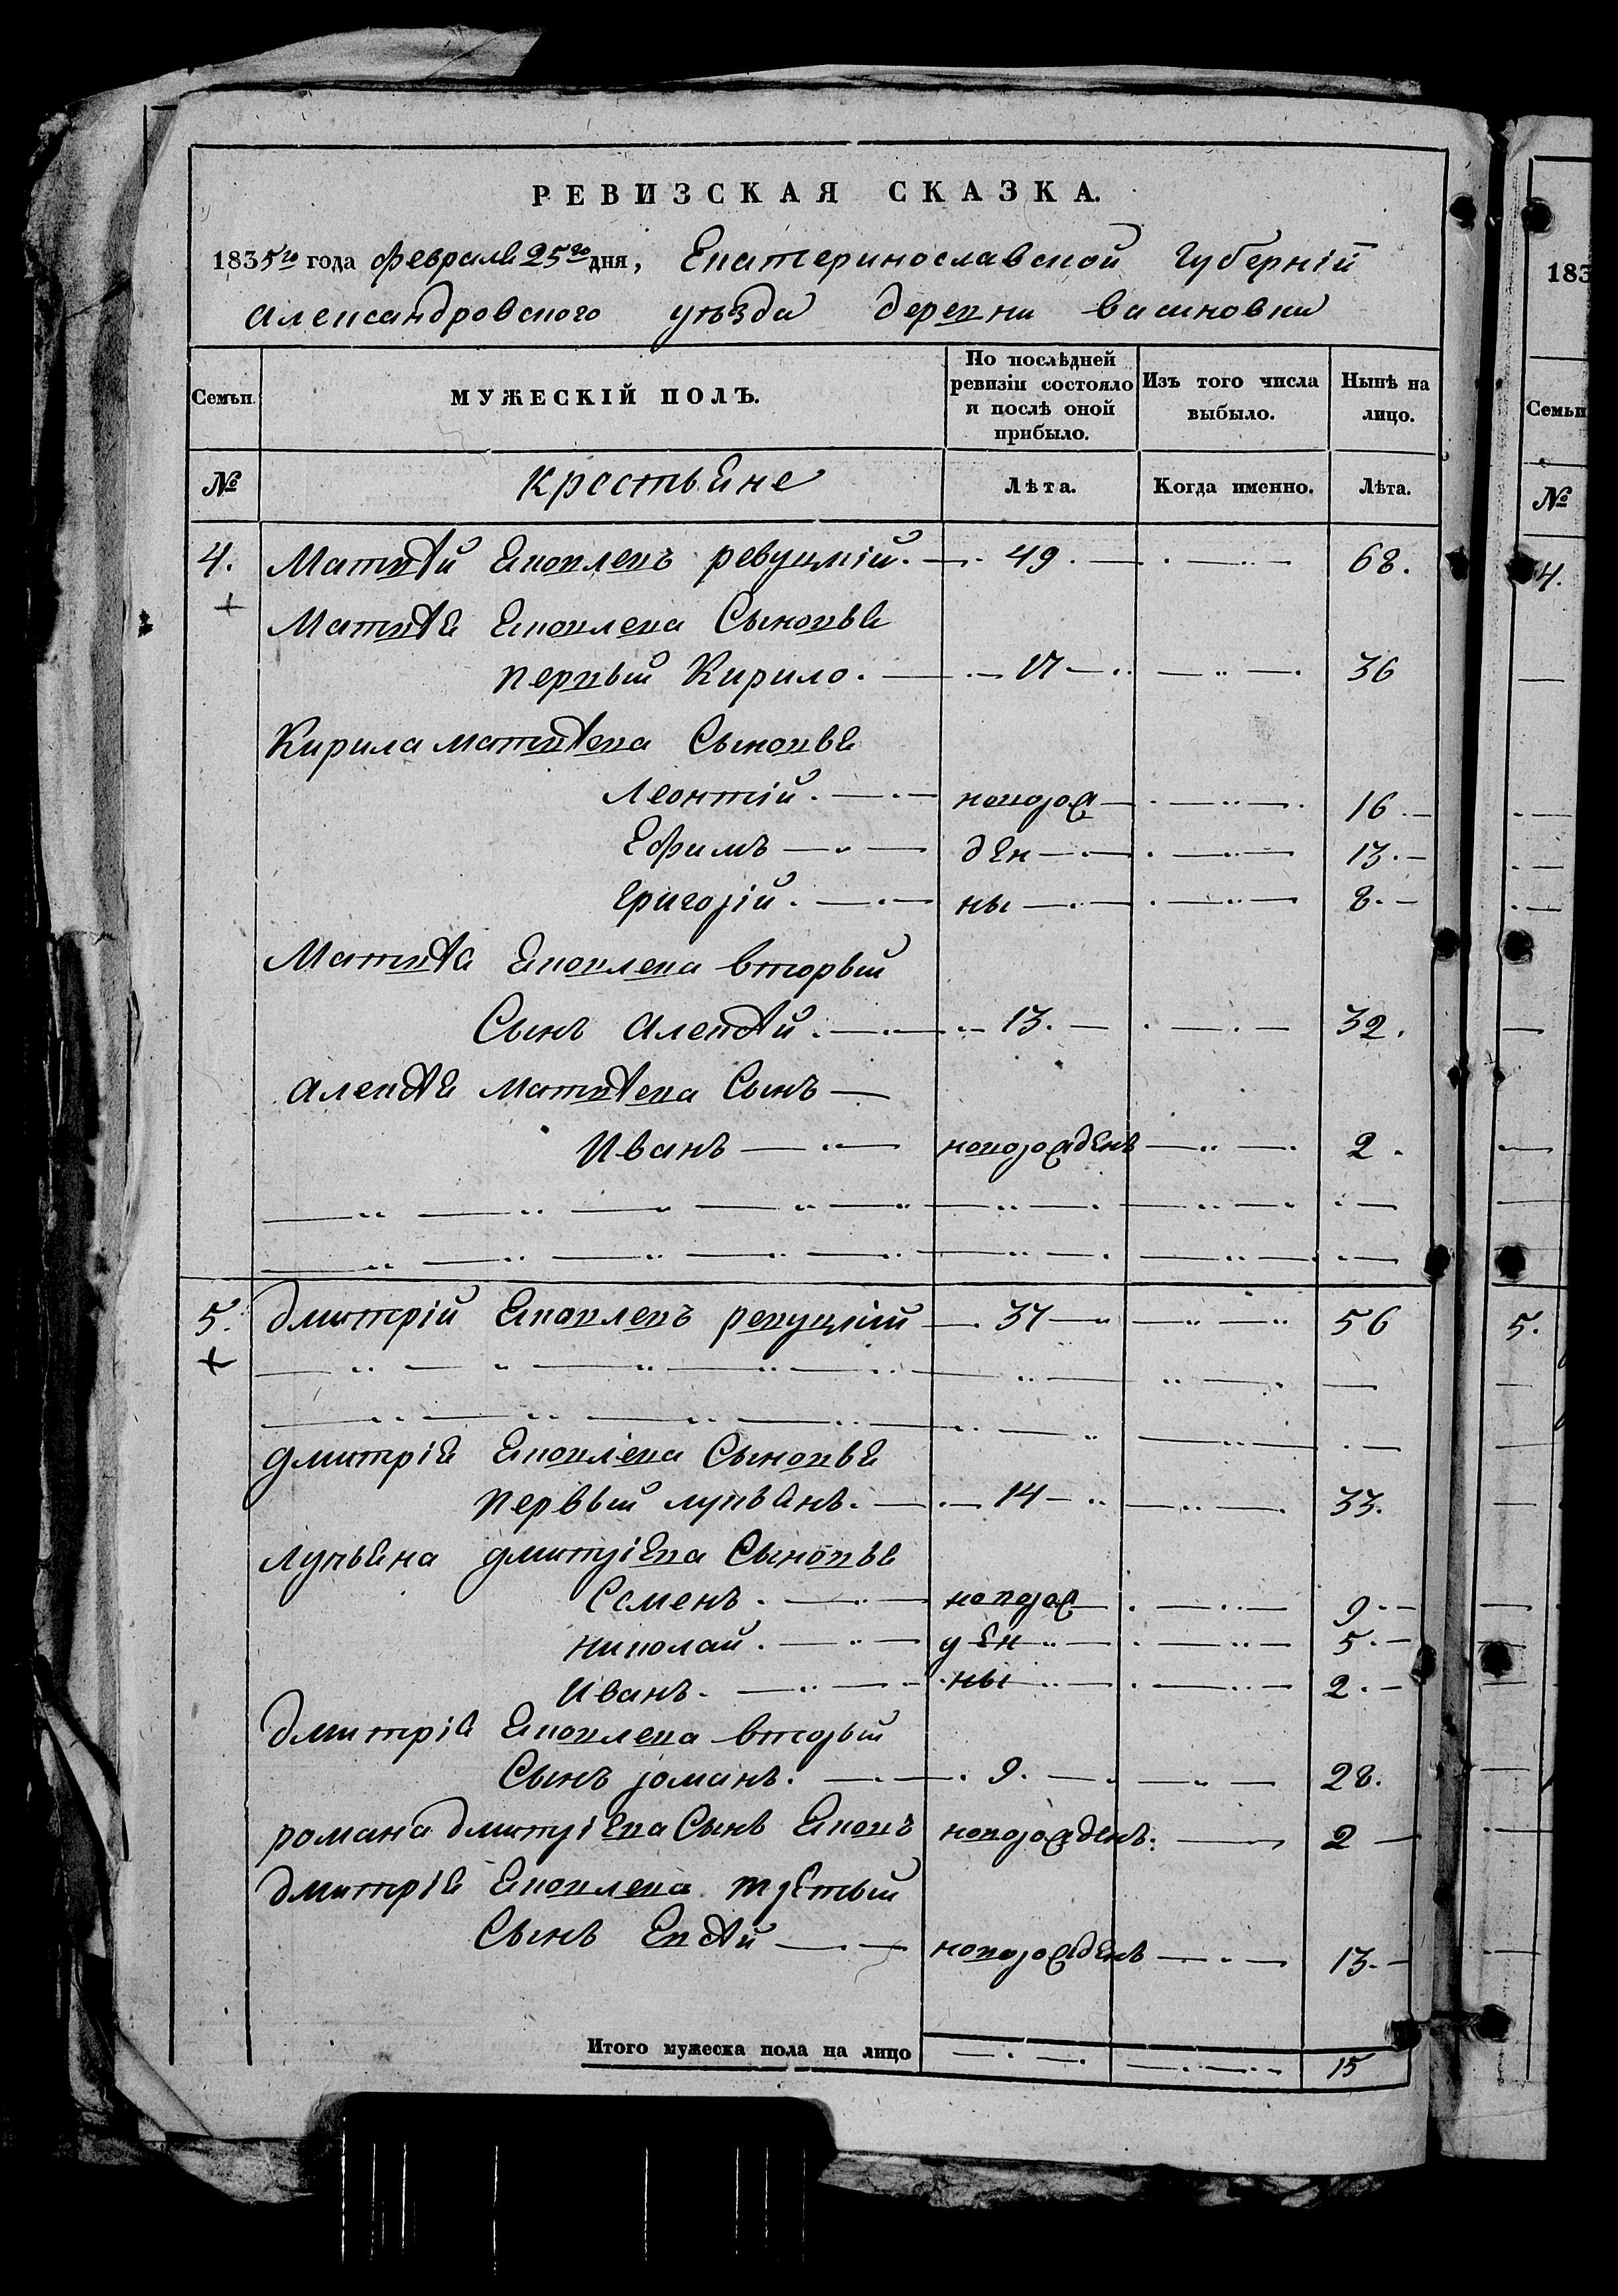 РЕВИЗСКАЯ СКАЗКА.
1835го года февраля 25го дня, Екатеринославской Губерніи
Александровского уѣзда деревни васиновки
Семьи. МУЖЕСКІЙ ПОЛЪ. По послѣдней ревизіи состояло и послѣ оной прибыло. Изъ того числа выбыло. Нынѣ на лицо.
№ крестьяне Лѣта. Когда именно. Лѣта.
4. Матвѣй Яковлевъ ревуцкій. 49. 68.
Матвѣя Яковлева Сыновья
первый Кирило. 17 36
Кирила матвѣева Сыновья
Леонтій. новорож 16
Ефимъ ден 13.
Григорій. ны 8.
Матвѣя Яковлева вторый
Сынъ Алексѣй. 13. 32.
алексѣя матвѣева Сынъ
Иванъ новорожденъ 2.
5. дмитрій Яковлевъ ревуцкій 37 56
дмитрія Яковлева Сыновья
первый лукьянъ. 14 33.
лукьяна дмитріева Сыновья
Семенъ. новорож 9
николай. ден 5.
Иванъ. ны 2.
дмитрія Яковлева вторый
Сынъ романъ. 9. 28.
романа дмитріева Сынъ Яковъ новорожденъ. 2
дмитрія Яковлева третьій
Сынъ Евсѣй новорожденъ 13.
Итого мужеска пола на лицо 15
183
Семьи
№
4.
5.